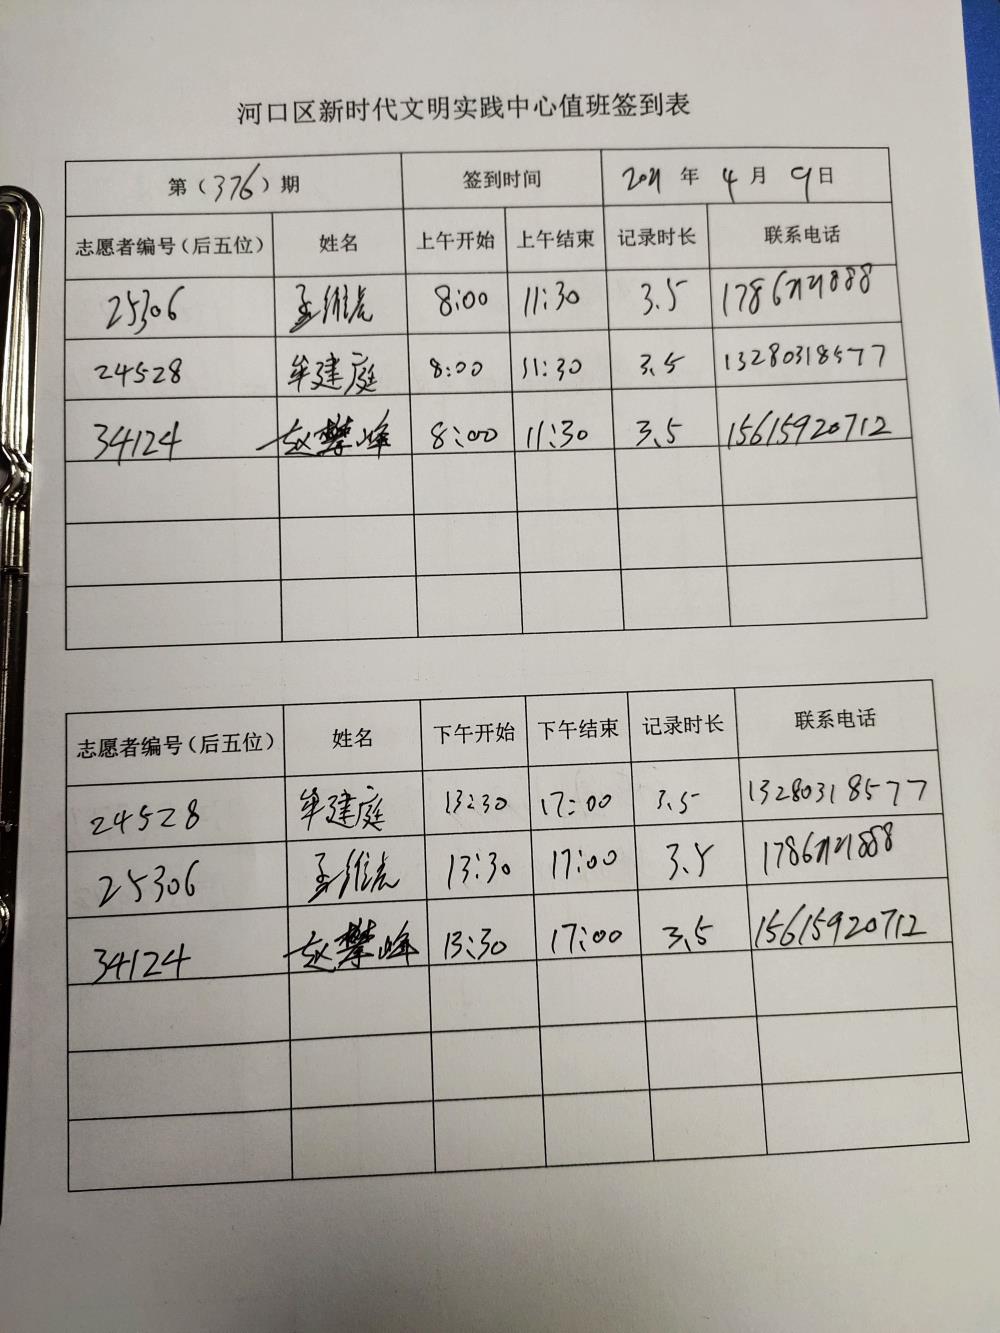 河口区新时代文明实践中心值班签到表
第（376）期 签到时间 2021 年 4 月 9 日
志愿者编号（后五位） 姓名 上午开始 上午结束 记录时长 联系电话
25306 孟维虎 8:00 11:30 3.5
24528 牟建庭 8:00 11:30 3.5 13280318577
34124 赵攀峰 8:00 11:30 3.5 15615920712
志愿者编号（后五位） 姓名 下午开始 下午结束 记录时长 联系电话
24528 牟建庭 13:30 17:00 3.5 13280318577
25306 孟维虎 13:30 17:00 3.5
34124 赵攀峰 13:30 17:00 3.5 15615920712